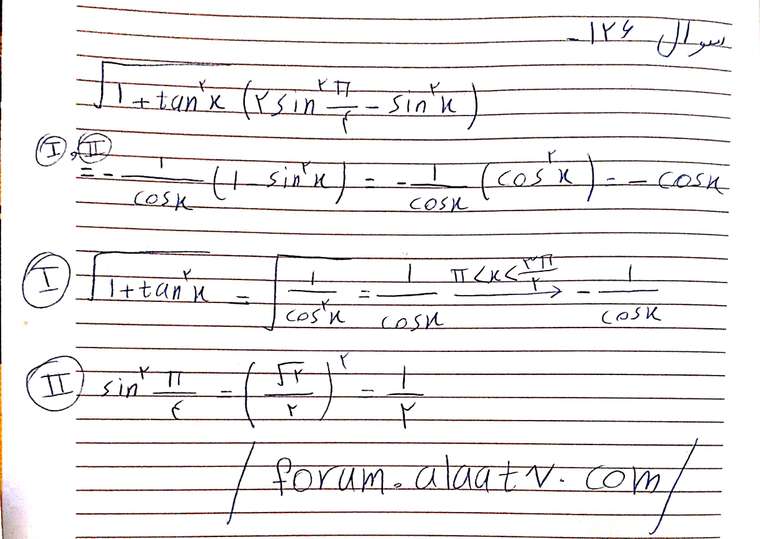 سوال ۱۲۶-
√(1+tan^۲x) (۲sin^۲ π/۴ - sin^۲x)
Ⅰ,Ⅱ
= -1/cosx (1 - sin^۲x) = -1/cosx (cos^۲x) = -cosx
Ⅰ √(1+tan^۲x) = √(1/cos^۲x) = 1/cosx π<x<۳π/۲ → -1/cosx
Ⅱ sin^۲ π/۴ = (√۲/۲)^۲ = 1/۲
/ forum.alaatv.com /